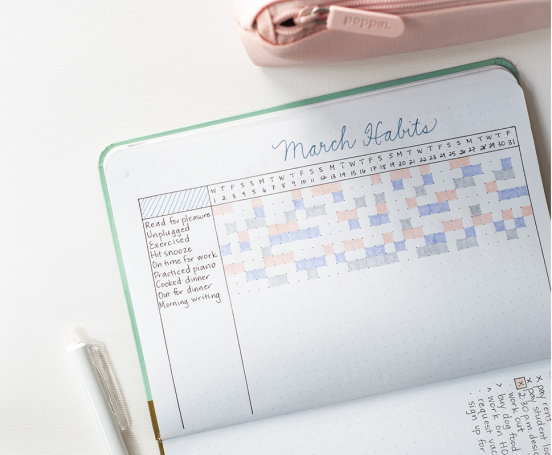 poppin.
March Habits
W T F S S M T W T F S S M T W T F S S M T W T F S S M T W T F
1 2 3 4 5 6 7 8 9 10 11 12 13 14 15 16 17 18 19 20 21 22 23 24 25 26 27 28 29 30 31
Read for pleasure
Unplugged
Exercised
Hit snooze
On time for work
Practiced piano
Cooked dinner
Out for dinner
Morning writing
x pay rent
x pay student loa
x 2:30 pm desig
work out
> buy dog food
^ work on HO
. request vac
. sign up for